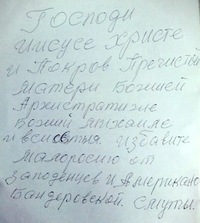 Господи
Иисусе Христе
и Покров Пречистый
Матери Божией
Архистратиже
Божий Михаиле
и вси святыя. Избавите
Малоросию от
Западенцев и Американо
Бандеровской Смуты.